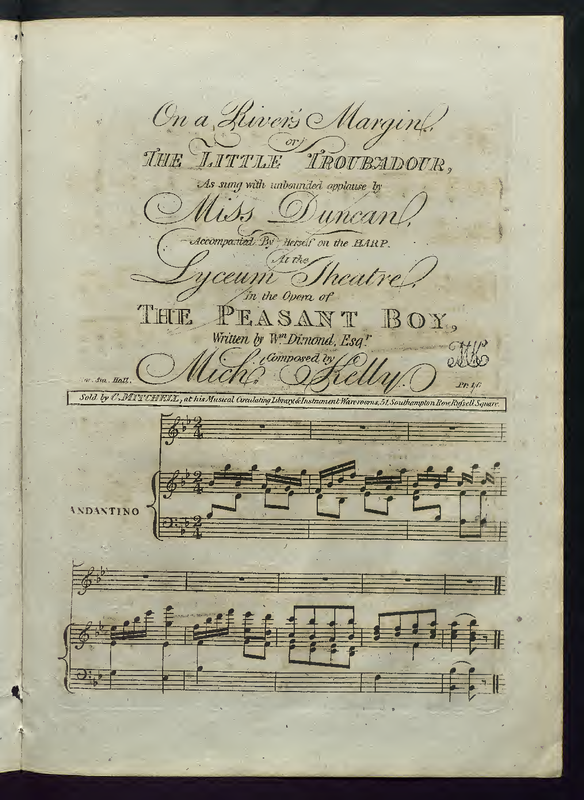 On a River's Margin.
or
THE LITTLE TROUBADOUR,
As sung with unbounded applause by
Miss Duncan.
Accompanied By Herself on the HARP.
At the
Lyceum Theatre.
in the Opera of
THE PEASANT BOY,
Written by Wm Dimond, Esqr
Composed by
Mich. Kelly.
Sta. Hall.
Pr. 1/6
Sold by C. MITCHELL, at his Musical Circulating Library & Instrument Warerooms, 51, Southampton Row Russell Square.
ANDANTINO